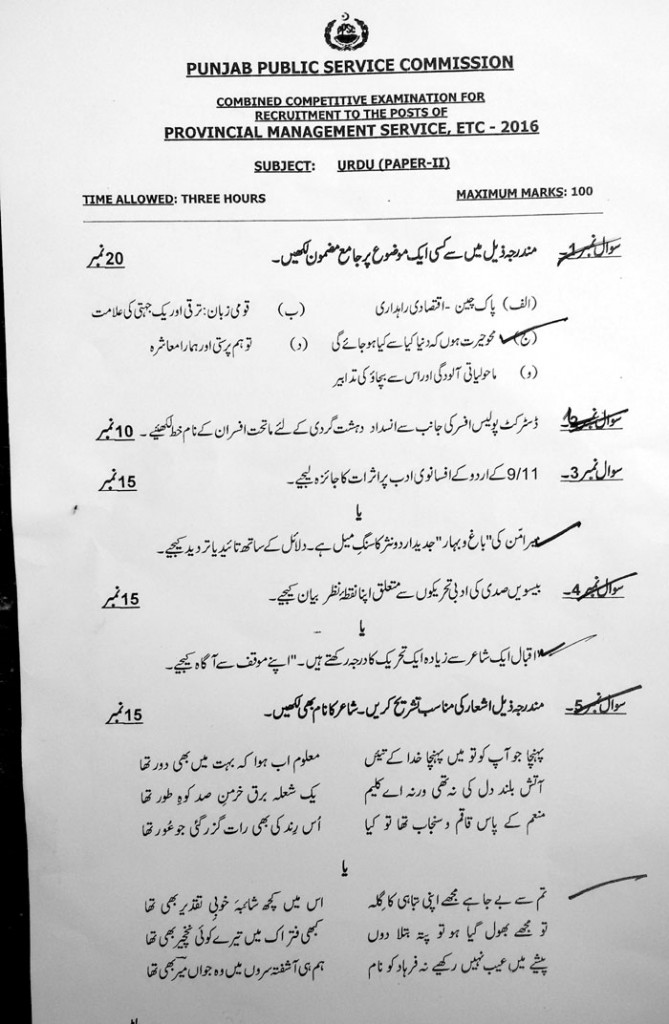 PUNJAB PUBLIC SERVICE COMMISSION
COMBINED COMPETITIVE EXAMINATION FOR
RECRUITMENT TO THE POSTS OF
PROVINCIAL MANAGEMENT SERVICE, ETC - 2016
SUBJECT: URDU (PAPER-II)
TIME ALLOWED: THREE HOURS MAXIMUM MARKS: 100
سوال نمبر 1۔ مندرجہ ذیل میں سے کسی ایک موضوع پر جامع مضمون لکھیں۔ 20 نمبر
(الف) پاک چین - اقتصادی راہداری (ب) قومی زبان: ترقی اور یک جہتی کی علامت
(ج) محو حیرت ہوں کہ دنیا کیا سے کیا ہو جائے گی (د) توہم پرستی اور ہمارا معاشرہ
(و) ماحولیاتی آلودگی اور اس سے بچاؤ کی تدابیر
سوال نمبر 2۔ ڈسٹرکٹ پولیس افسر کی جانب سے انسداد دہشت گردی کے لئے ماتحت افسران کے نام خط لکھئیے۔ 10 نمبر
سوال نمبر 3۔ 9/11 کے اردو کے افسانوی ادب پر اثرات کا جائزہ لیجیے۔ 15 نمبر
یا
میرامّن کی "باغ و بہار" جدید اردو نثر کا سنگِ میل ہے۔ دلائل کے ساتھ تائید یا تردید کیجیے۔
سوال نمبر 4۔ بیسویں صدی کی ادبی تحریکوں سے متعلق اپنا نقطۂ نظر بیان کیجیے۔ 15 نمبر
یا
"اقبال ایک شاعر سے زیادہ ایک تحریک کا درجہ رکھتے ہیں۔" اپنے موقف سے آگاہ کیجیے۔
سوال نمبر 5۔ مندرجہ ذیل اشعار کی مناسب تشریح کریں۔ شاعر کا نام بھی لکھیں۔ 15 نمبر
پہنچا جو آپ کو تو میں پہنچا خدا کے تئیں معلوم اب ہوا کہ بہت میں بھی دور تھا
آتش بلند دل کی نہ تھی ورنہ اے کلیم یک شعلہ برق خرمنِ صد کوہِ طور تھا
منعم کے پاس قاقم و سنجاب تھا تو کیا اُس رِند کی بھی رات گزر گئی جو عُور تھا
یا
تم سے بے جا ہے مجھے اپنی تباہی کا گِلہ اس میں کچھ شائبۂ خوبیِ تقدیر بھی تھا
تو مجھے بھول گیا ہو تو پتہ بتلا دوں کبھی فتراک میں تیرے کوئی نخچیر بھی تھا
پیشے میں عیب نہیں رکھیے نہ فرہاد کو نام ہم ہی آشفتہ سروں میں وہ جواں میر بھی تھا